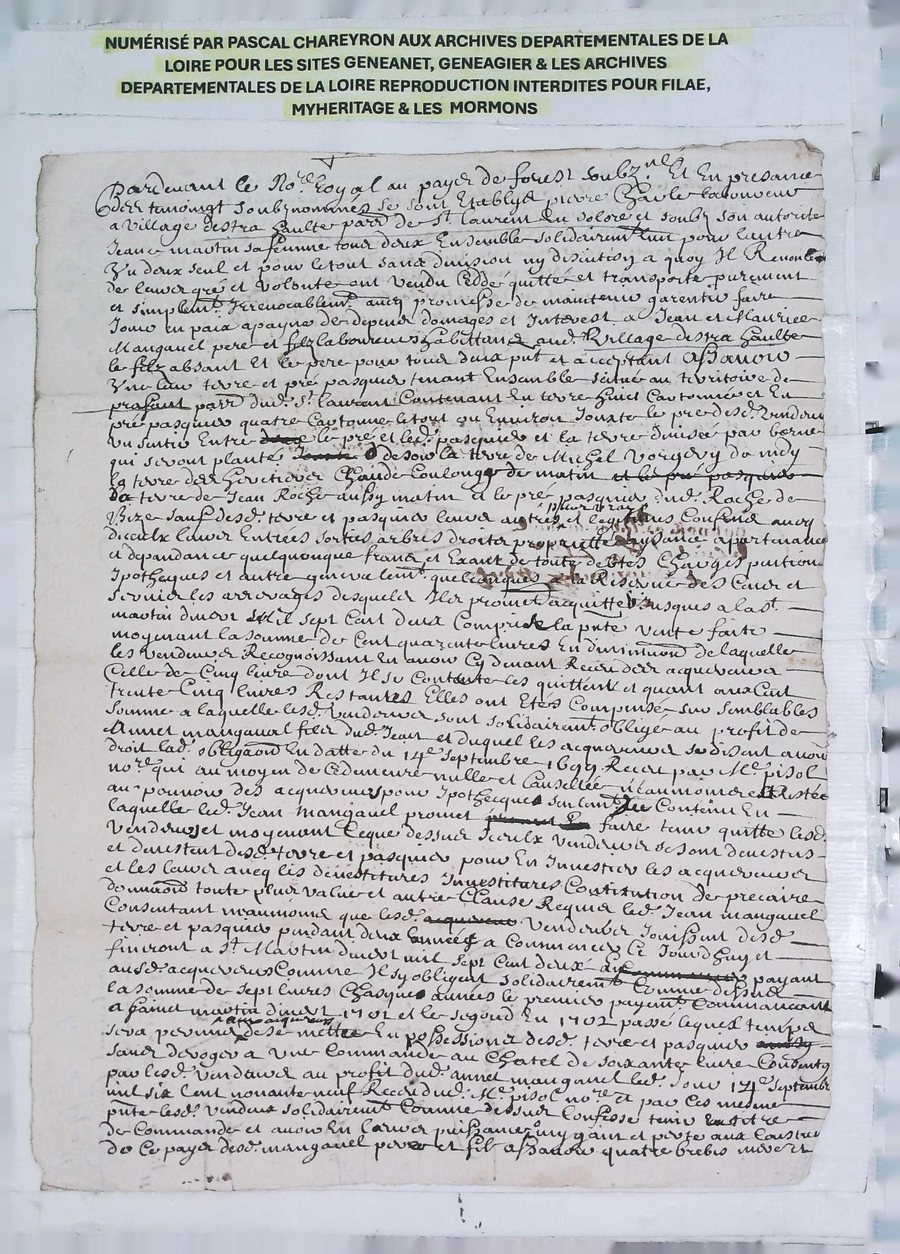 NUMÉRISÉ PAR PASCAL CHAREYRON AUX ARCHIVES DEPARTEMENTALES DE LA
LOIRE POUR LES SITES GENEANET, GENEAGIER & LES ARCHIVES
DEPARTEMENTALES DE LA LOIRE REPRODUCTION INTERDITES POUR FILAE,
MYHERITAGE & LES MORMONS
Pardevant le No.re Royal au payer de forest soubz.né Et En presance
se sont Etablys pierre Chasle laboureur
a village destra haulte parr.e de S.t laurent En solore et soubz son autorite
Jeane martin sa femme tous deux Ensemble solidairem.t lun pour lautre
Un deux seul et pour le tout sans division ny discution a quoy Il Renonse
de leur gre et volonte ont vendu Cedde quitte et transporte purement
et simplem.t Irrevocablem.t avec promesse de maintenir garentir faire
Jouir en paix apayne de depens domages et Interest a Jean et Maurice
Mangavel pere et filz laboureurs habittans aud. Village destra haulte
le filz absant Et le pere pour tous deux p.nt et acceptant Assavoir
Une leur terre et pré pasquier tenant Ensemble scitué au territoire de
parr.e dud. S.t laurent Contenant En terre huict Cartonné et En
pré pasquier quatre Cartonne le tout ou Environ Jouxte le pre desd. vendeu
Entre le pré et led. pasquier et la terre divisée par borne
qui seront plantés desoir la terre de Michel Vorgery de midy
la terre des heretiers Claude Coulonge de matin et le pré pasquier
da terre de Jean Roche aussy matin & le pré pasquier dud. Roche de
Bize sauf desd. terre et pasquier leurs autres et legitimes Confins avec
diceulx leurs Entrees sorties arbres droits propriette apartenance
et dependance quelquonque franc et Exant de toute debtes Charges
Ipotheques et autre generalem.t quelconques a la Reserve des Cens et
servis les arrerages desquels Il promet acquitter jusques a la S.t
martin dhiver Mil sept Cent deux Compris la p.nte vente faite
moyenant la somme de Cent quarente livres En diminution de laquelle
les vendeurs Recognoissant En avoir Cy devant Receu des acquereurs
Celle de Cinq livre dont Il se Contante les quittent et quant aux Cent
trente Cinq livres Restantes Elles ont Etés Compensé sur semblables
somme a laquelle lesd. Vendeurs sont solidairem.t obligé au profit de
Annet mangaval filz dud. Jean et duquel les acquereurs se disent avoir
droit lad. obliga.on En datte du 14.e Septembre 1699 Receu par M.e pisol
no.re qui au moyen de ce demeure nulle et Cansellée
au pouvoir des acquereurs pour Ipothecque Contenu En
laquelle led. Jean mangavel promet faire tenir quitte lesd.
Vendeurs et moyenant Ceque dessus Iceulx Vendeurs se sont devestus
et desd. terre et pasquier pour En Investir les acquereurs
et les leurs avec les devestitures Investitures Constitution de precaire
toute plus value et autre Clause Requise led. Jean mangavel
Consentant neaumoins que lesd. Vendeurs Jouissent desd.
terre et pasquier pendant deux années a Commencer Ce Jourdhuy et
finiront a S.t Martin dhiver mil sept Cent deux payant
ausd. acquereurs Comme Il sy obligent solidairem.t Comme dessus
la somme de sept livres Chasque années le premier payem.t Commancant
a sainct martin dhiver 1701 et le segond En 1702 passé lequel temps
sera permis de se mettre En possessions desd. terre et pasquier
sans deroger a Une Commande au Chatel de soixante livre Consenty
par lesd. Vendeurs au profit dud. annet mangavel led. Jour 14.e Septembre
mil six Cent nonante neuf Receu dud. M.e pisol no.re Et par Ces mesme
p.nte lesd. vendeurs solidairem.t Comme dessus Confesse tenir
de Commande et avoir En leurs puissance a my gain et perte aux Coustume
de Ce payer desd. mangavel pere et filz assavoir quatre brebis